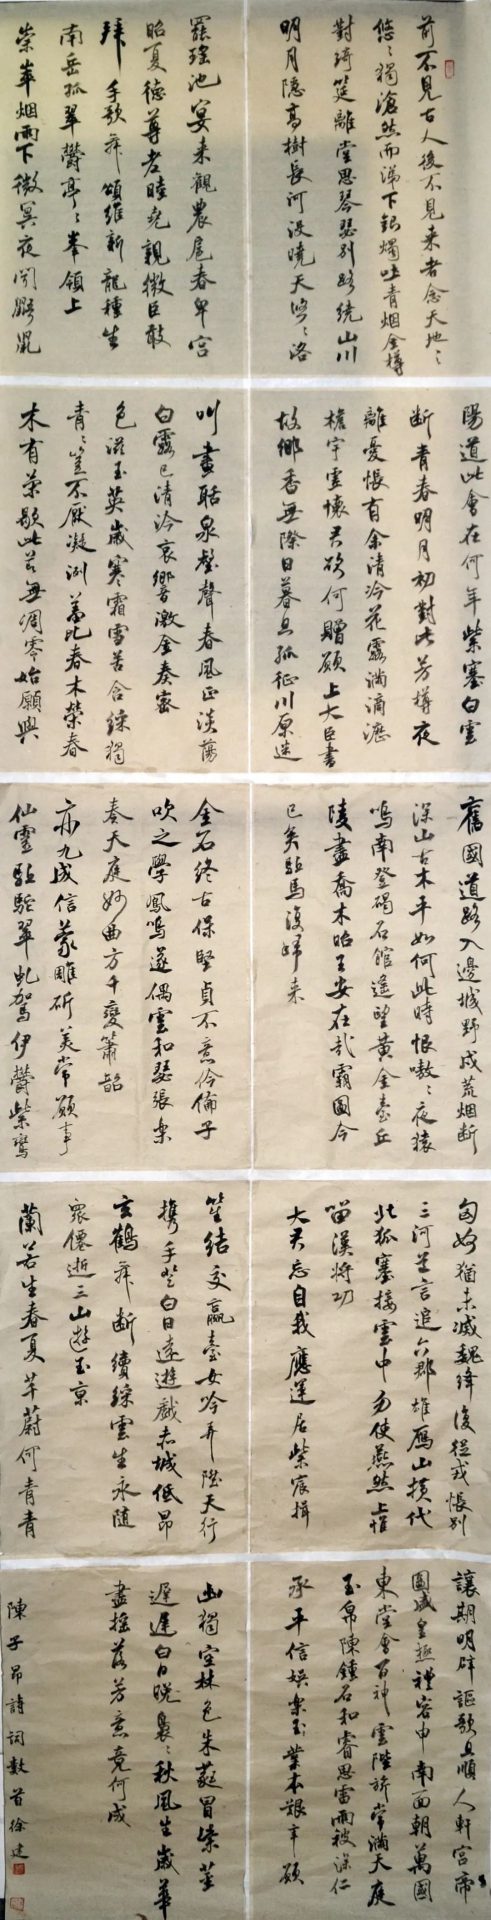 前不見古人後不見来者念天地〻
悠〻獨滄然而涕下銀燭吐青烟金樽
對綺筵離堂思琴瑟别路繞山川
明月隱高樹長河没曉天悠〻洛
陽道此會在何年紫塞白雲
断青春明月初對此芳樽夜
離憂悵有余清泠花露滿滴瀝
檐宇虚懷君欲何贈願上大臣書
故鄉杳無際日暮且孤征川原迷
舊國道路入邊城野戍荒烟断
深山古木平如何此時恨噭〻夜猿
鳴南登碣石館遥望黄金臺丘
陵盡喬木昭王安在哉霸圖今
已矣驅馬復歸来
匈奴猶未滅魏絳復從戎悵别
三河道言追六郡雄雁山横代
北狐塞接雲中勿使燕然上惟
留漢將功
大君忘自我應運居紫宸揖
讓期明辟謳歌且順人軒宫帝
圖盛皇極禮容申南面朝萬國
東堂會百神雲陛旂常滿天庭
玉帛陳鍾石和睿思雷雨被深仁
承平信娱樂王業本艱辛願
罷瑶池宴来觀農扈春卑宫
昭夏德尊老睦堯親微臣敢
拜手歌舞頌維新龍種生
南岳孤翠鬱亭〻峯嶺上
崇崒烟雨下微冥夜聞鼯鼠
叫晝聒泉壑聲春風正淡蕩
白露已清泠哀響激金奏密
色滋玉英歲寒霜雪苦含綵獨
青〻豈不厭凝冽羞比春木榮春
木有榮歇此節無凋零始願與
金石終古保堅貞不意伶倫子
吹之學鳳鳴遂偶雲和瑟張樂
奏天庭妙曲方千變簫韶
亦九成信蒙雕斫美常願事
仙靈驅馳翠虬駕伊鬱紫鸞
笙結交嬴臺女吟弄陞天行
携手登白日遠遊戲赤城低昂
玄鶴舞断續綵雲生永隨
衆僊逝三山遊玉京
蘭若生春夏芊蔚何青青
幽獨空林色朱蕤冒紫莖
遲遲白日晚裊〻秋風生歲華
盡摇落芳意竟何成
陳子昂詩詞數首徐建